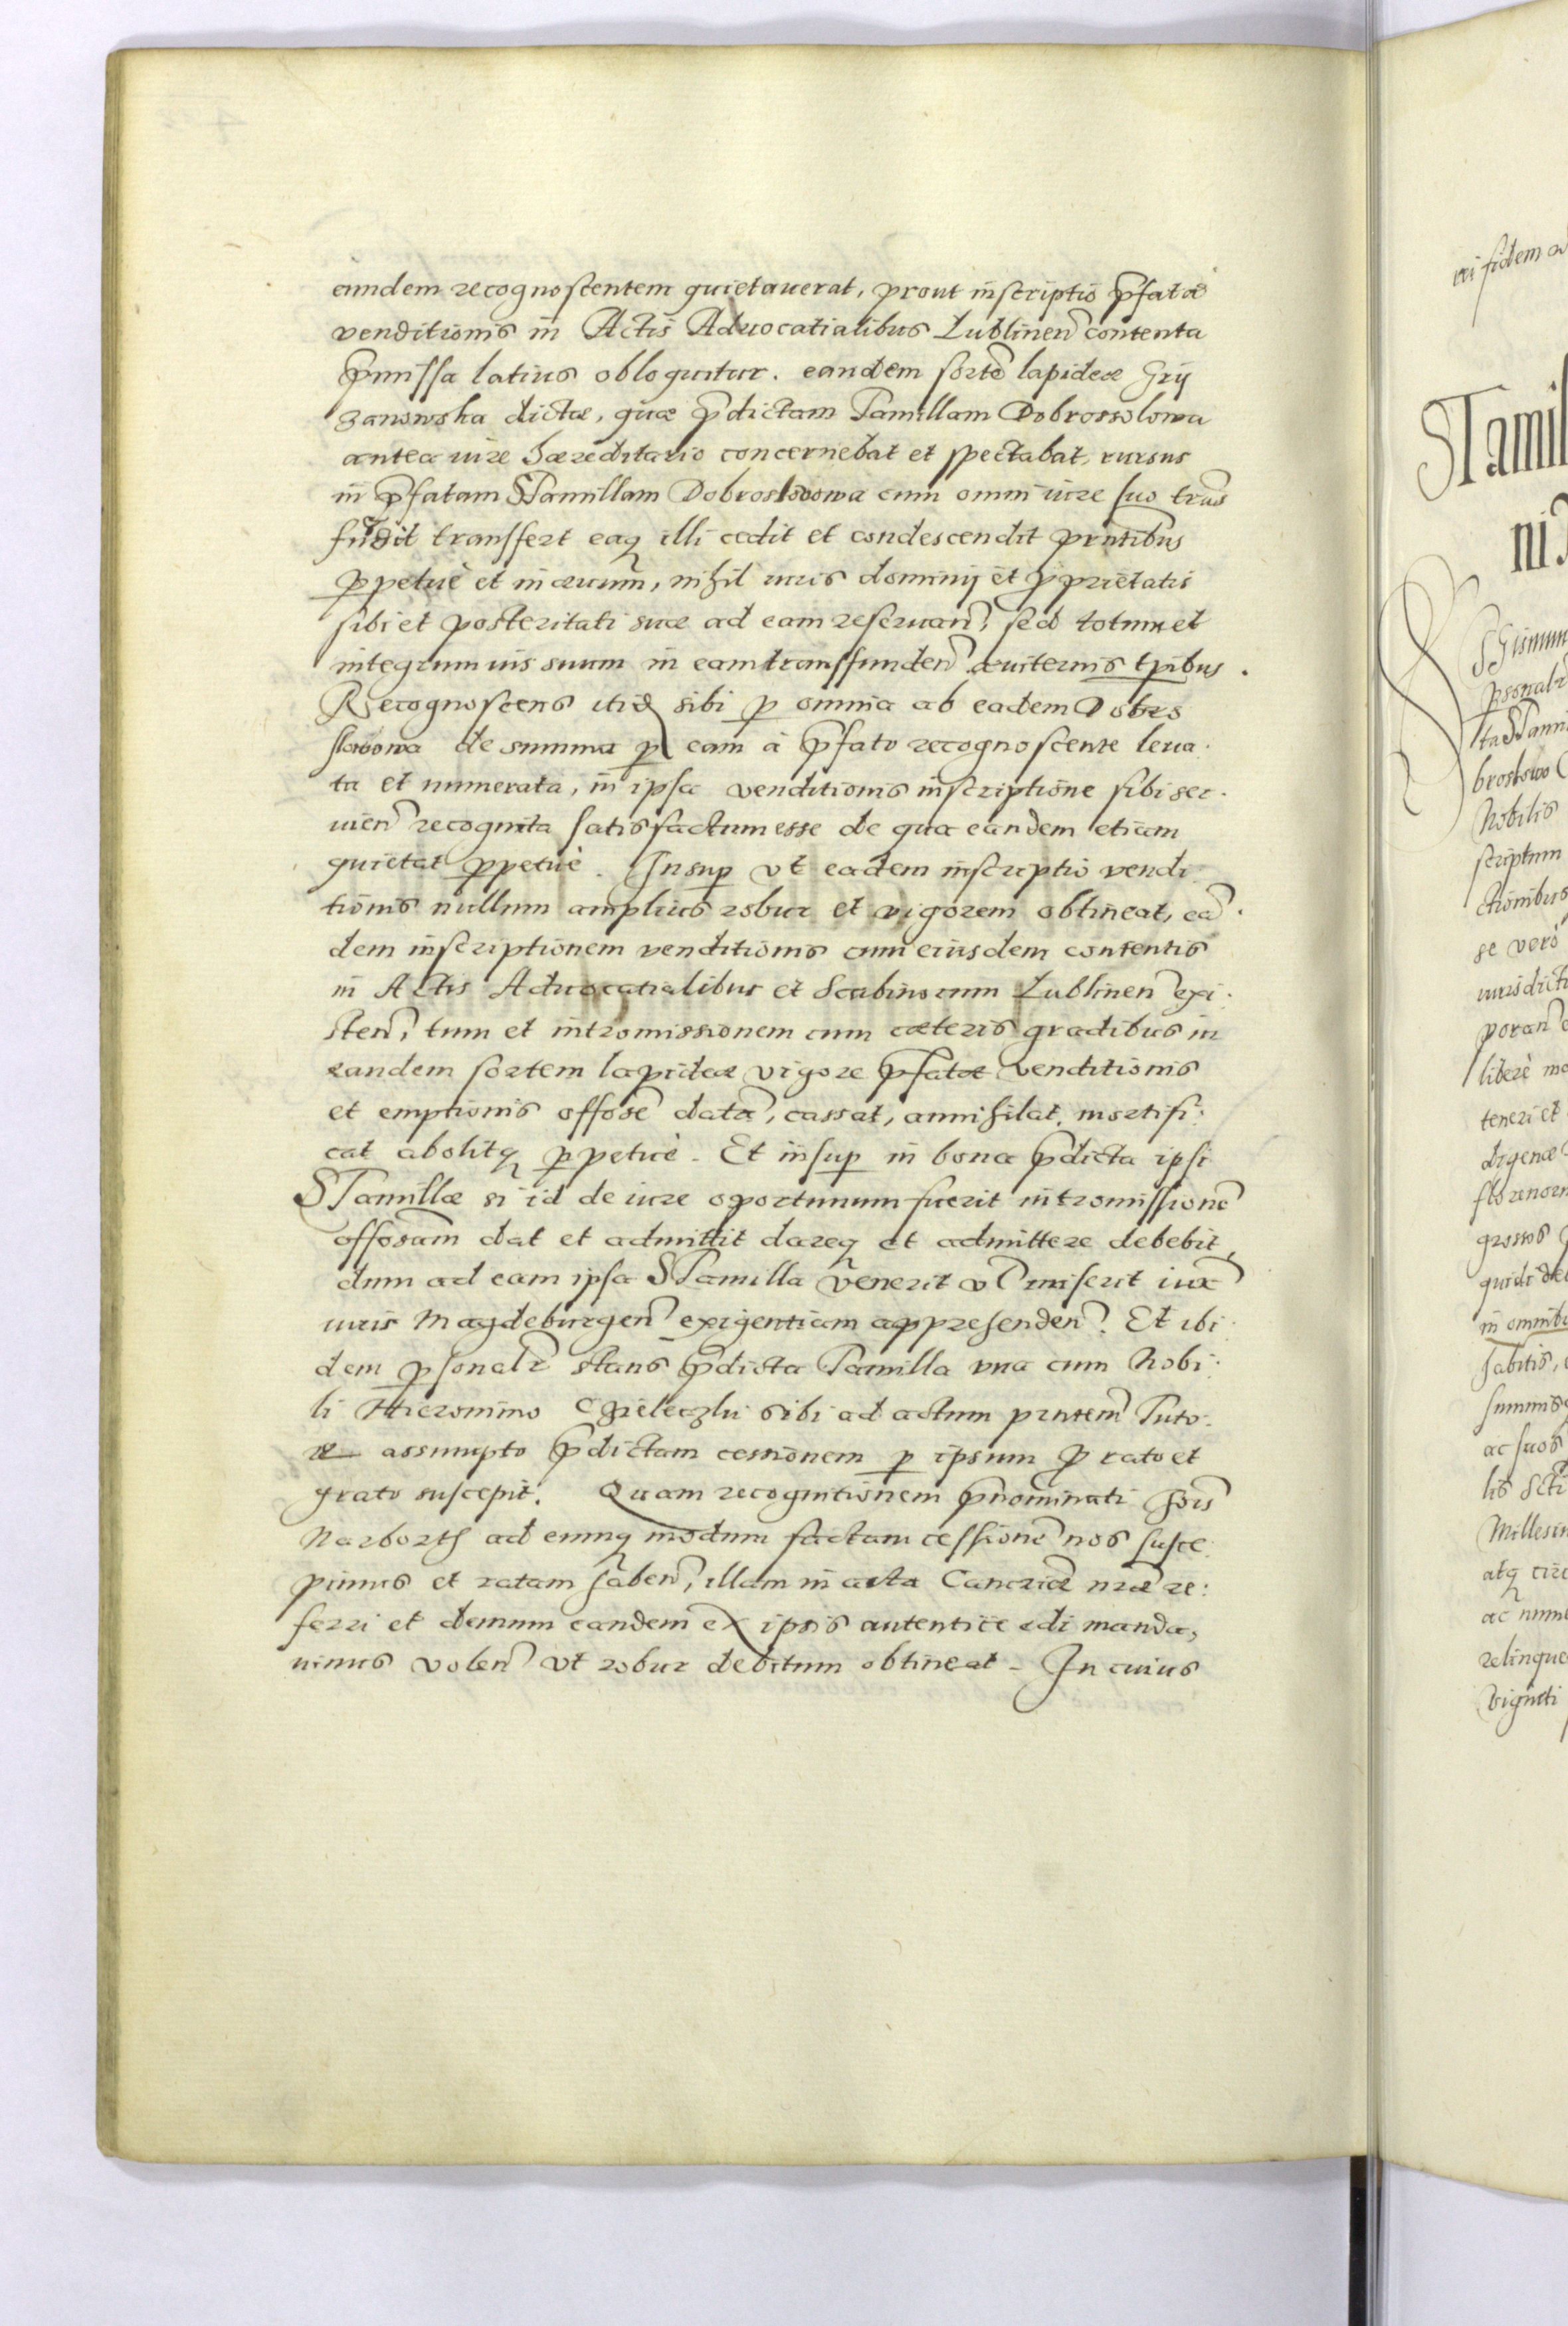 eundem recognoscentem quietauerat, prout inscriptio p̃fatæ
venditionis in Actis Aduocatialibus Lublineñ contenta
p̃missa latius obloquitur. eandem sortẽ lapideæ Grij
zanowska dictæ, quæ p̃dictam Tamillam Dobrossolowa
antea iure hæreditario concernebat et spectabat, rursus
in p̃fatam STamillam Dobroslowowa cum omni iure suo trãs
fudit transfert eaq illi cedit et condescendit pñtibus
ppetuè et in æuum, nihil iuris dominij et pprietatis
sibi et posteritati suæ ad eam reseruañ, sed totum et
integrum ius suum in eam transfundeñ æuiternis tp̃ibus.
Recognoscens itid sibi p omnia ab eadem Dobro
slowowa de summa p eam à p̃fato recognoscente leua.
ta et numerata, in ipsa venditionis inscriptione sibi ser.
uieñ recognita satisfactum esse de qua eandem etiam
quietat ppetuè. Insup vt eadem inscriptio vendi.
tionis nullum amplius robur et vigorem obtineat, eã.
dem inscriptionem venditionis cum eiusdem contentis
in Actis Aduocatialibus et Scabinorum Lublineñ exi.
steñ, tum et intromissionem cum cæteris gradibus in
eandem sortem lapideæ vigore p̃fatæ venditionis
et emptionis offosẽ datã, cassat, annihilat, mortifi:
cat abolitq ppetuè. Et insup in bona p̃dicta ipsi
STamillæ si id de iure oportunum fuerit intromissionẽ
offosam dat et admittit dareq et admittere debebit,
dum ad eam ipsa STamilla venerit vl miserit iux̃
iuris Magdeburgeñ exigentiam apprehendeñ. Et ibi.
dem psonalr̃ stans p̃dicta Tamilla vna cum Nobi.
li Hieronimo Chieleczki sibi ad actum pñtem Tuto.
re assumpto p̃dictam cessionem p ipsum p rato et
grato suscepit. Quam recognitionem p̃nominati
Narborth ad eumq modum factam cessionẽ nos susce.
pimus et ratam habeñ, illam in acta Canceriæ nr̃æ re:
ferri et demum eandem ex ipsis autenticè edi manda,
uimus voleñ vt robur debitum obtineat. In cuius
rei fidem
STamil
ni
SGismun
psonalr
ta STami
broslowo
Nobilis
scriptum
ctionibus
se verò
iurisdicti
porañ
liberè mo
teneri et
digenæ
florenor
grossos
quidi
in omnib
habitis,
summis
ac suos
lis
Millesim
atq circ
ac nume
relinque
viginti